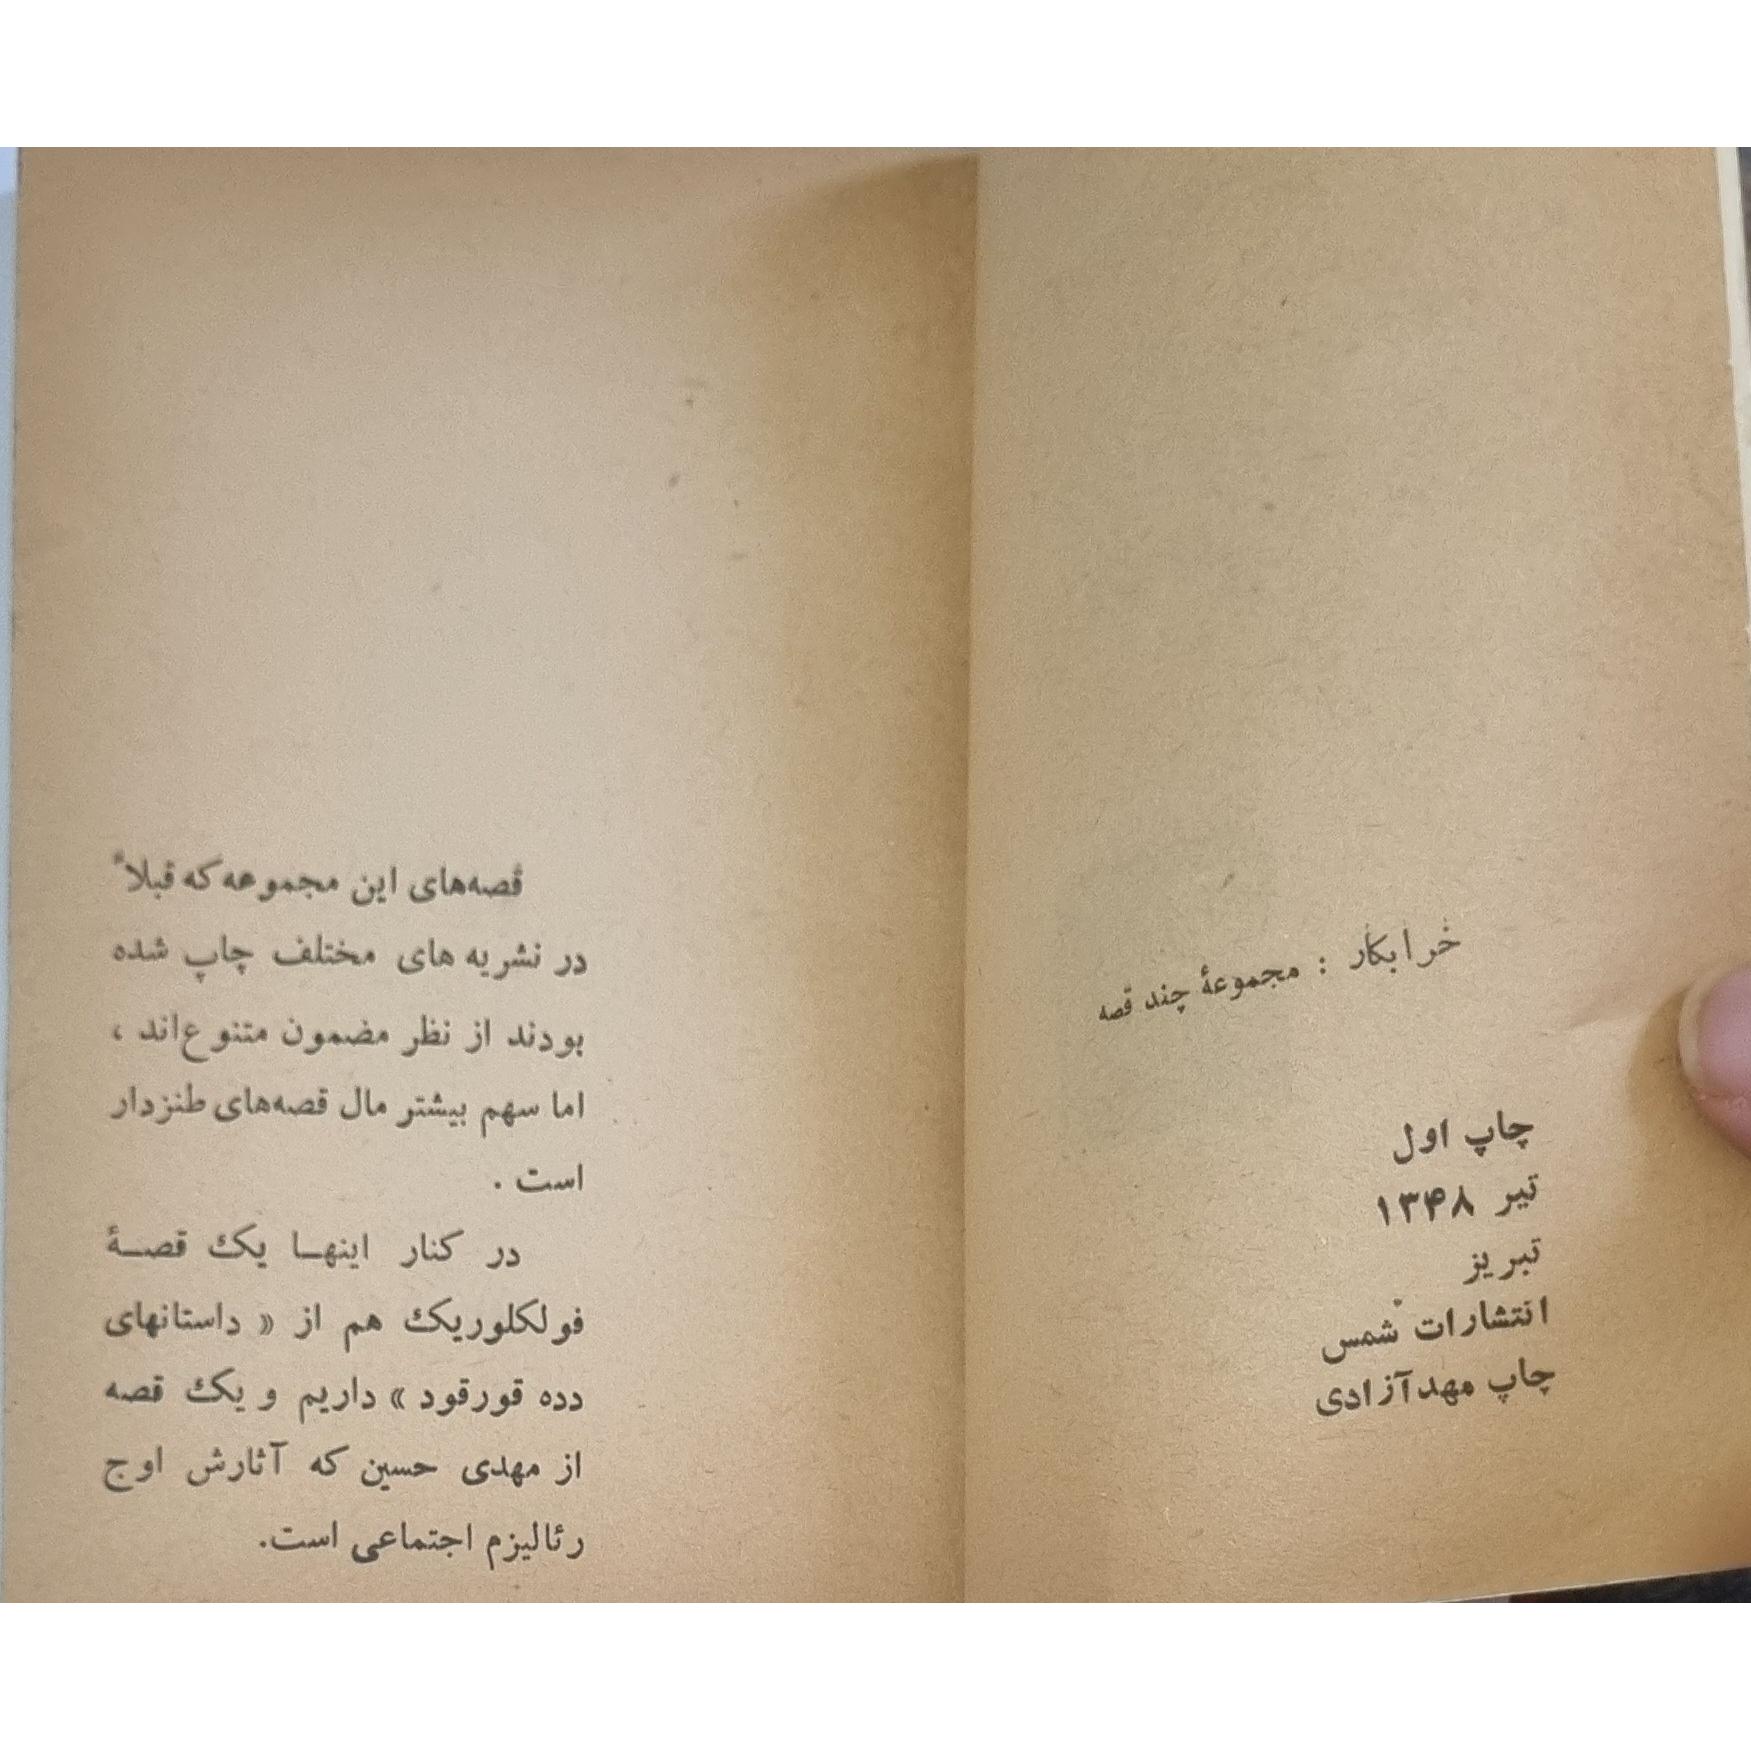 خرابکار : مجموعهٔ چند قصه
چاپ اول
تیر ۱۳۴۸
تبریز
انتشارات شمس
چاپ مهدآزادی
قصه‌های این مجموعه که قبلاً
در نشریه های مختلف چاپ شده
بودند از نظر مضمون متنوع‌اند ،
اما سهم بیشتر مال قصه‌های طنزدار
است .
در کنار اینهـا یک قصـهٔ
فولکلوریک هم از « داستانهای
دده قورقود » داریم و یک قصه
از مهدی حسین که آثارش اوج
رئالیزم اجتماعی است.